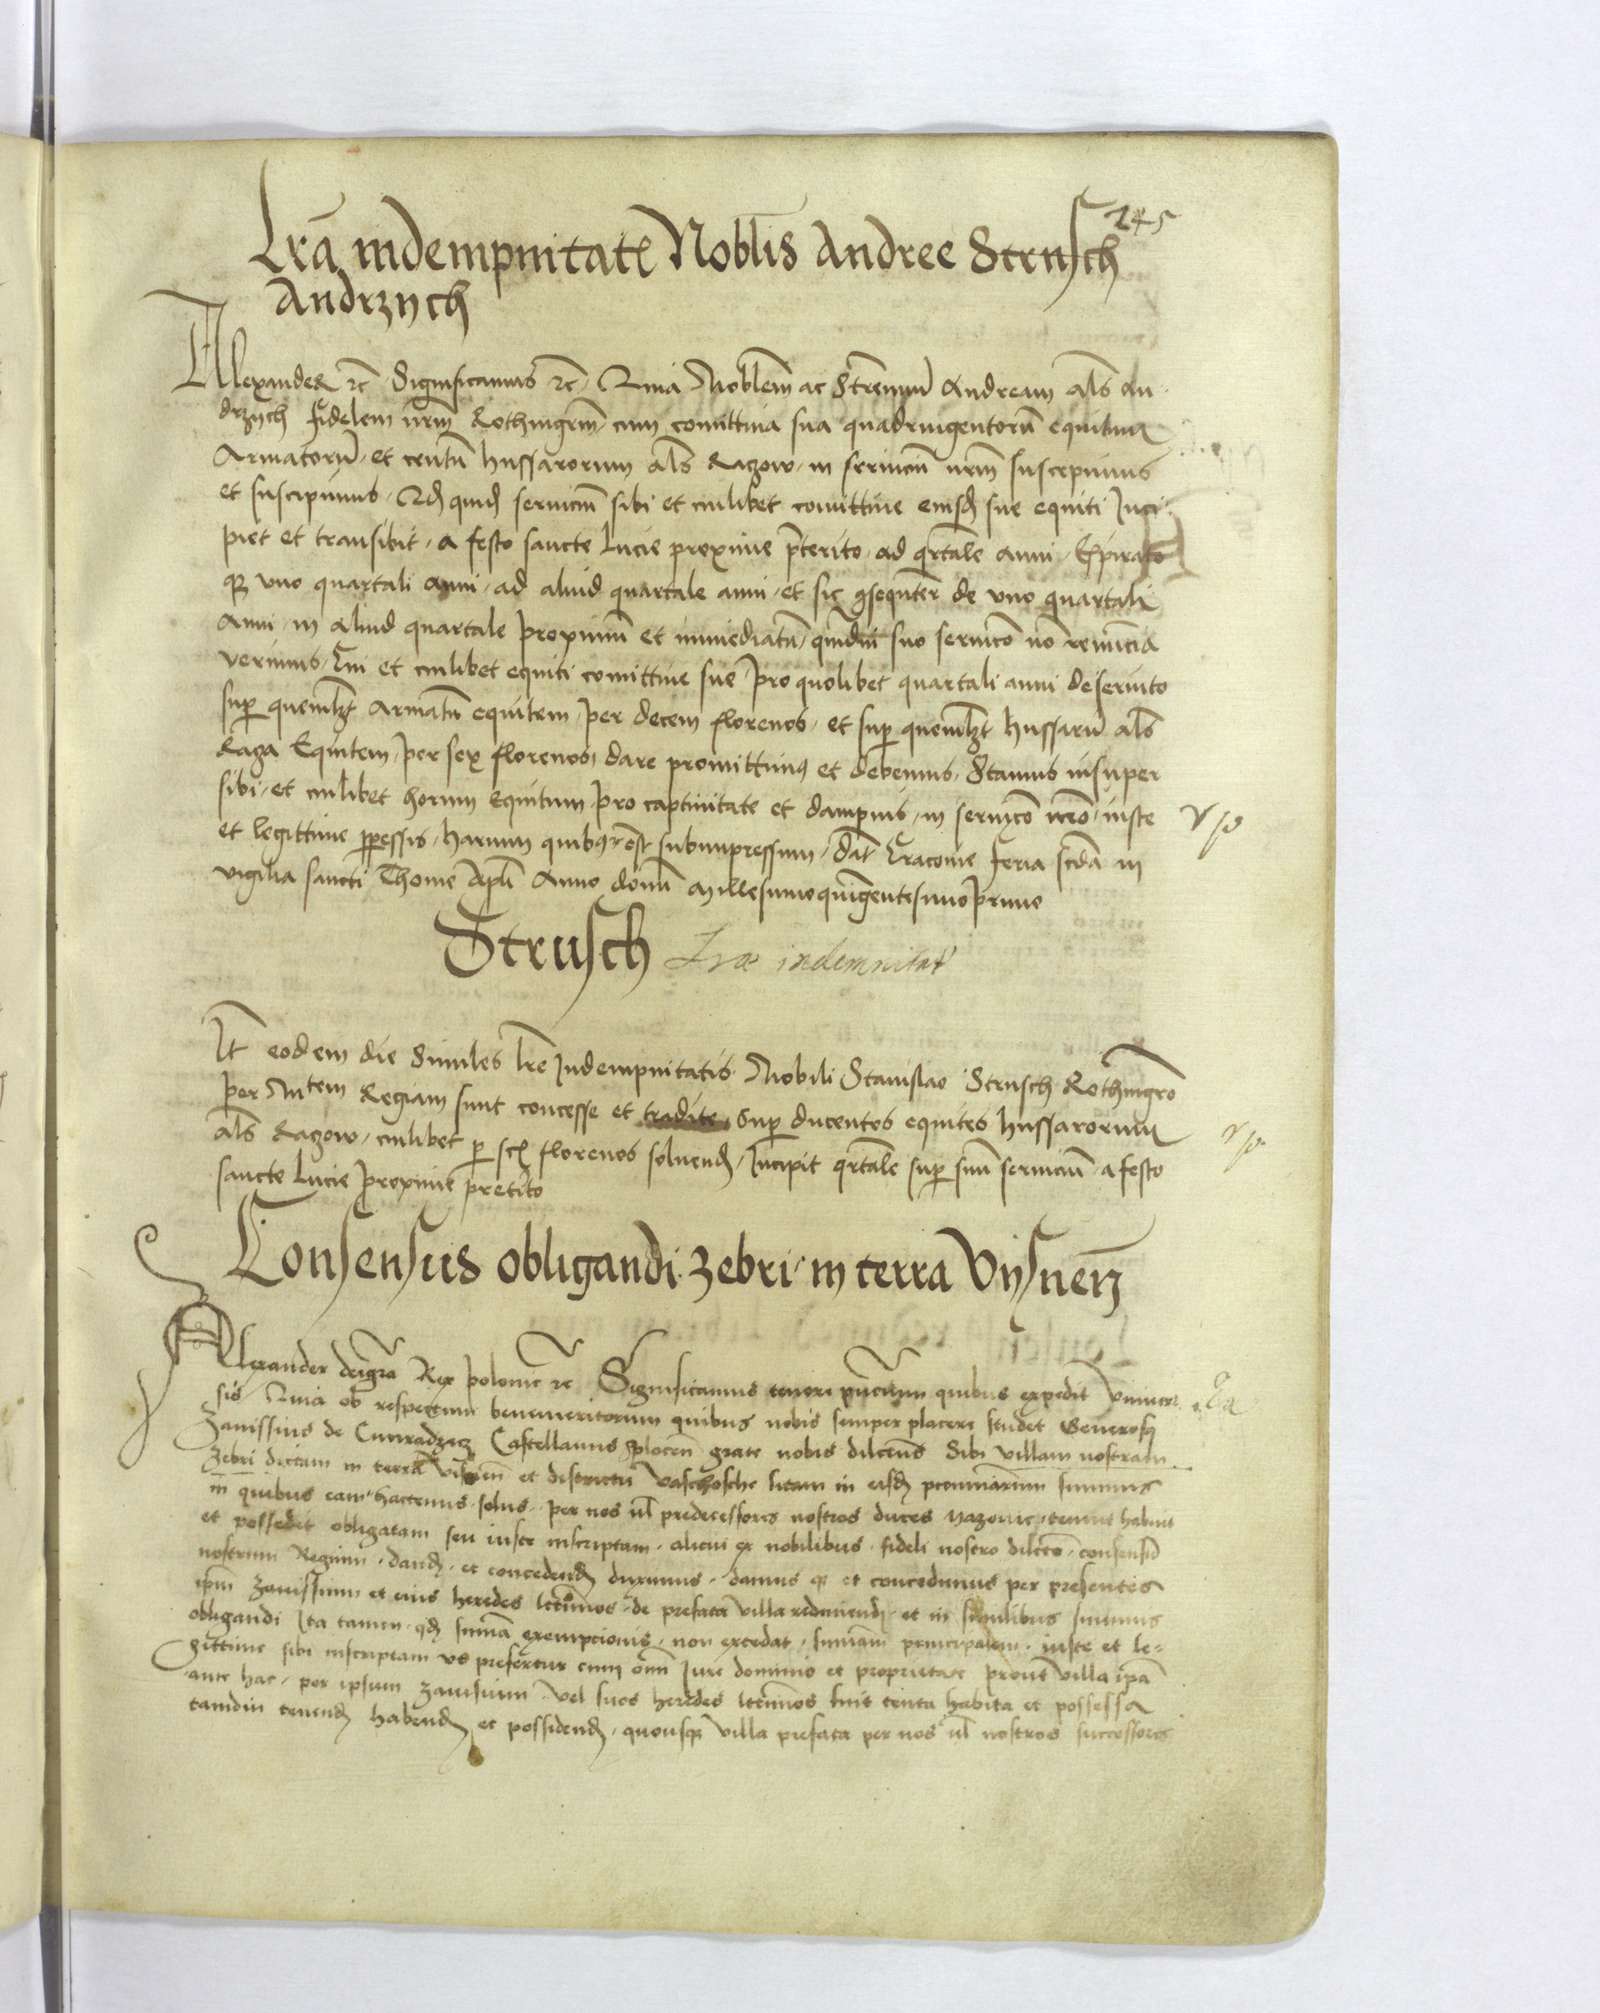 245
Lrā indempnitatꝭ Noblis Andree Strusch
Andrzych
Alexander ꝛc̄ Significamus ꝛc̄ Quia Noblem̄ ac Strenuū Andream als̄ An
drzych fidelem nrm̄ Rothmgrm̄ cum comittiua sua quadringentorū equitum
Armatorū et centū hussarorum als̄ Raczow in seruiciū nrm̄ suscepimus
et suscipimus Qd̄ quid̄ seruiciū sibi et cuilibet comittiue eiusd̄ sue equiti Inci
piet et transibit a festo sancte Lucie proxime p̄terito ad qrtale anni Expirato
qȝ vno quartali anni ad aliud quartale anni et sic ꝯsequnter de vno quartali
Anni in aliud quartale proximū et immediatū quādiu suo seruicio nō renūccia
verimus Cui et cuilibet equiti comittiue sue pro quolibet quartali anni deseruito
sup quemlȝt Armatū equitem per decem florenos et sup quemlȝt hussarū als̄
Raza Equitem per sex florenos dare promittimꝰ et debemus Stamus insuper
sibi et cuilibet horum Equitum pro captiuitate et dampnis in seruicio nrō iuste
et legittime ꝑpessis harum quibꝰ est subimpressum Dat̄ Cracouie feria scda in
vigilia sancti Thome Apli Anno domī Millesimoquingentesimoprimo
Strusch Lræ indemnitat
It̄ eodem die Similes lrē Indempnitatis Nobili Stanislao Strusch Rothmgrō
per Mtem Regiam sunt concesse et tradite sup ducentos equites hussarorum
als̄ Raczow cuilibet ꝑ sex florenos soluend̄ Incipit qrtale sup suū seruiciū a festo
sancte Lucie proxime pretito
Consensus obligandi zebri in terra Visnen̄
Alexander dei grā Rex polonie ꝛc̄ Significamus tenore pn̄cium quibus expedit Vniuer
sis Quia ob respectum benemeritorum quibus nobis semper placere studet Generosꝰ
Zauissius de Castellanus plocen̄ grate nobis dilectus Sibi villam nostram
zebri dictam in terra visnen̄ et districtu Vaschosche sitam in eisd̄ pecuniarum summis
in quibus eam hactenus solus per nos vl̄ predecessores nostros duces Mazouie tenuit habuit
et possedit obligatam seu iuste inscriptam alicui ex nobilibus fideli nostro dilecto consensū
nostrum Regium dand̄ et concedend̄ duximus damus qȝ et concedimus per presentes
ipm̄ Zauissium et eius heredes ltimos de prefata villa redimendi et in similibus summis
obligandi Ita tamen qd̄ summa exempcionis non excedat summam principalem iuste et le-
gittime sibi inscriptam vt prefertur cum omī Iure dominio et proprietate prout villa ipa
ante hac per ipsum zauisium vel suos heredes ltimos fuit tenta habita et possessa
tamdiu tenend̄ habend̄ et possidend̄ quousqȝ villa prefata per nos vl̄ nostros successores